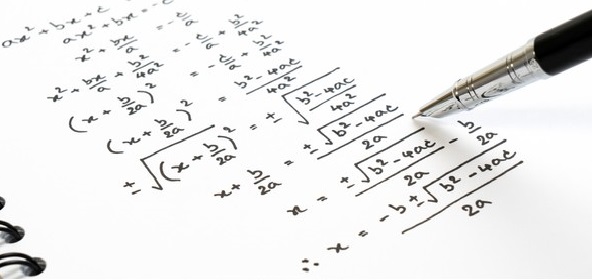 ax² + bx + c
ax² + bx = -c
x² + bx/a = -c/a
x² + bx/a + b²/4a² = -c/a + b²/4a²
(x + b/2a)² = -c/a + b²/4a²
(x + b/2a)² = b² - 4ac/4a²
±√(x + b/2a)² = ±√b² - 4ac/4a²
x + b/2a = ±√b² - 4ac/2a
x = ±√b² - 4ac/2a - b/2a
∴ x = -b ± √b² - 4ac/2a